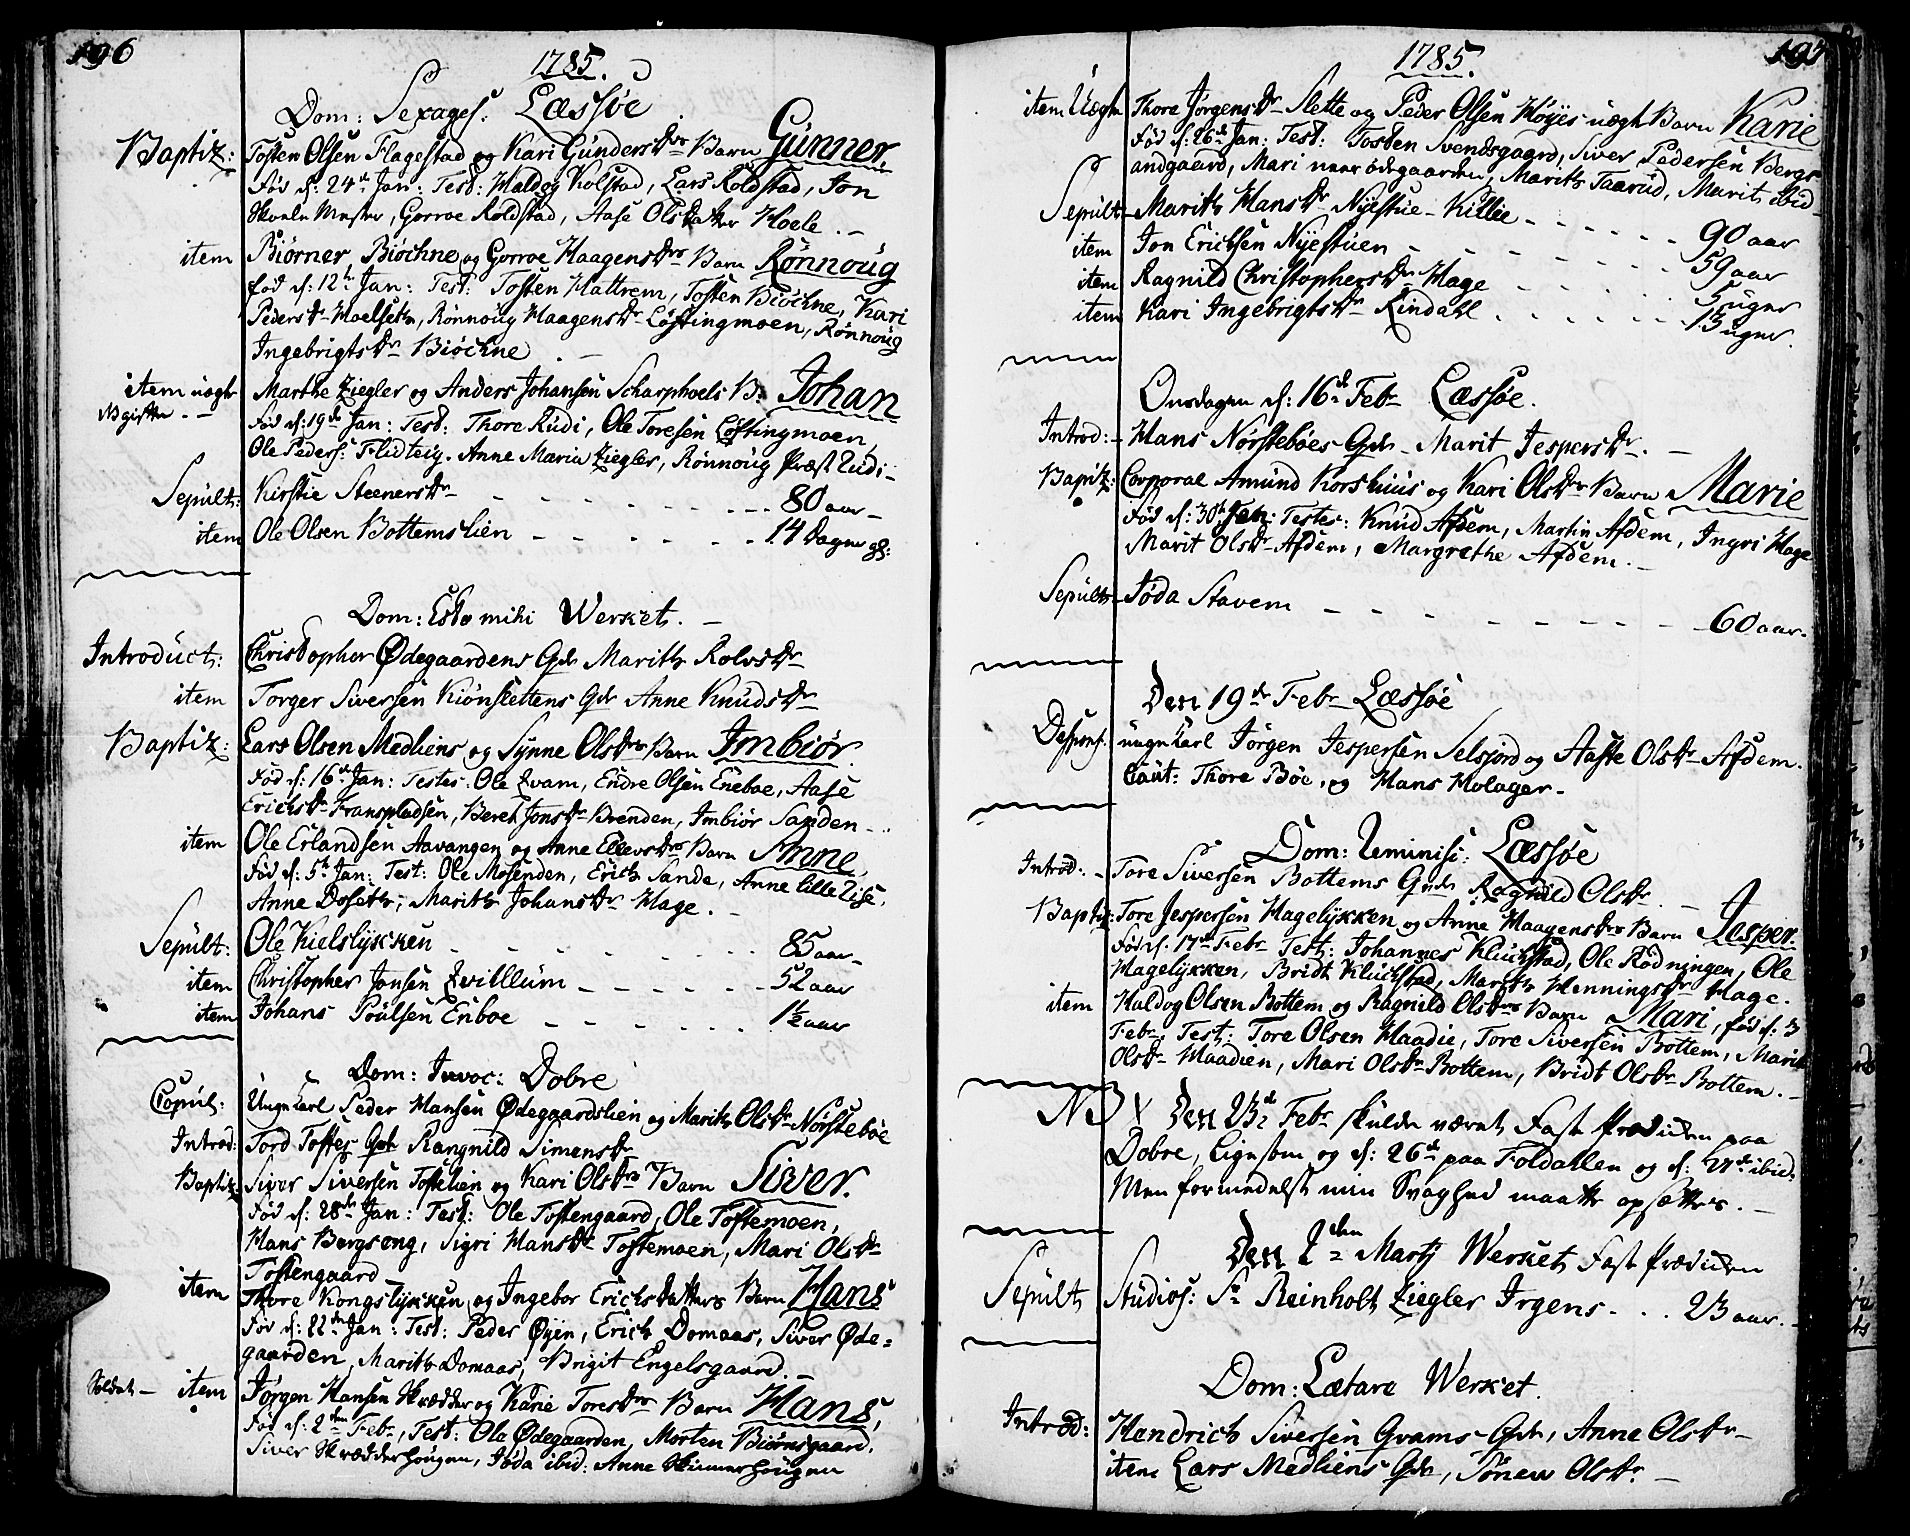 196
1785.
Dom: Sexages: Læssøe
Baptiz: Tosten Olsen Flagestad og Kari Gundersdr Barn Gunner.
Fød d: 24de Jan: Test: Haldog Kolstad, Lars Roldstad, Jon
Skoele Mester, Gorroe Roldstad, Aase Olsdatter Hoele.
item Biørner Biøchne og Gorroe Haagensdrs Barn Rønnoug
fød d: 12te Jan: Test: Tosten Hattrem, Tosten Biøchne, Kari
Pedersdr Hoelseth, Rønnoug Haagensdr Løftingmoen, Rønnoug
Ingebrigtsdr Biøchne.
item uægte Marthe Ziegler og Anders Johansen Scharphoels B: Johan
NB gifte Fød d: 19de Jan: Test: Thore Rudi, Ole Toresen Løftingmoen,
Ole Peders: Flidteig. Anne Maria Ziegler, Rønnoug Præst Rudi
Sepult: Kirstie Steenersdr 80 aar
item Ole Olsen Bottemslien 14 Dage gl:
Dom: Esto mihi Werket.
Introduct: Christopher Ødegaardens Qde Marith Rolvsdr
item Torger Siversen Kiønslettens Qde Anne Knudsdr
Baptiz: Lars Olsen Medliens og Synne Olsdrs Barn Imbiør.
Fød d: 16de Jan: Testes: Ole Qvam, Endre Olsen Eneboe, Aase
Erichsdr Franspladsen, Bereth Jonsdr Brenden, Imbiør Sanden
item Ole Erlandsen Aavangen og Anne Ellevsdrs Barn Anne,
Fød d: 5te Jan: Test: Ole Mosenden, Erich Sande, Anne lille Lise,
Anne Doseth, Marith Johansdr Hage.
Sepult: Ole Kielslykken 85 aar
item Christopher Jonsen Zwillum 52 aar
item Johans Poulsen Enboe 1½ aar
Dom: Invoc: Dobre
Copul: Ungn Karl Peder Hansen Ødegaardslien og Marith Olsdr Nørsteboe
Introd: Tord Toftes Qde Rangnild Simensdr
Baptiz: Siver Siversen Toftelien og Kari Olsdrs Barn Siver.
Fød d: 28de Jan: Test: Ole Toftengaard, Ole Toftemoen,
Hans Bergseng, Sigri Hansdr Toftemoen, Mari Olsdr
Toftengaard
item Thore Kongslykken og Ingebor Erichsdatters Barn Hans
Fød d: 22de Jan: Test: Peder Øyen, Erich Domaas, Siver Øde=
gaarden, Marith Domaas, Brigit Engelsgaard.
Soldat item Jørgen Hansen Skrædder og Karie Toresdrs Barn Hans,
Fød d: 2den Feb:, Test: Ole Ødegaarden, Morten Biørnsgaard,
Siver Skrædderhougen, Jøda ibid: Anne Skinnerhougen
197
1785.
item Uægte Thore Jørgensdr Slette og Peder Olsen Høyes uægte Barn Karie
Fød d: 26de Jan: Test: Tosten Svendsgaard, Siver Pedersen Bergs
andgaard, Mari næer ødegaarden, Marith Taarud, Marit ibid
Sepult: Marith Hansdr Nyestue-Killie 90 aar
item Jon Erichsen Nyestuen 59 aar
item Ragnild Christophersdr Hage 5 uger
item Kari Ingebrigtsdr Rindahl 13 uger.
Onsdagen d: 16de Febr Læssøe.
Introd: Hans Nørsteboes Qde Marit Jespersdr.
Baptz: Corporal Amund Korshuus og Kari Olsdrs Barn Marie
Fød d: 30te Jan: Testes: Knud Afdem, Martin Afdem, Ingri Hage
Marit Olsdr Afdem, Margrethe Afdem.
Sepult: Jøda Stavem 60 aar.
Den 19de Febr Læssøe
Despons: ungn Karl Jørgen Jespersen Selsjord og Aaste Olsdr Afdem.
Caut: Thore Bøe, og Hans Holager.
Dom: Reminisc: Læssøe
Introd: Tore Siversen Bottems Qde Ragnild Olsdr.
Baptz: Tore Jespersen Hagelykken og Anne Haagensdrs Barn Jesper.
Fød d: 17de Febr Test: Johannes Kluchstad, Ole Rødningen, Ole
Hagelykken, Bridt Kluchstad, Marith Henningsdr Hage.
item Haldog Olsen Bottem og Ragnild Olsdrs Barn Mari, fød d: 3
Febr. Test: Tore Olsen Haadie, Tore Siversen Bottem, Marit
Olsdr Haadien, Mari Olsdr Bottem, Bridt Olsdr Bottem.
NB Den 23de Febr skulde været Fast Prædiken paa
Dobre, Ligesom og d: 26de paa Foldahlen og d: 27de ibid
Men formedelst min Svaghed maatte opsættes.
Den 2den Martj Werket Fast Prædiken
Sepult Studios: Sr Reinholt Ziegler Irgens 23 aar.
Dom: Lætare Werket.
Introd: Hendrich Siversen Qvams Qde, Anne Olsdr
item Lars Medliens Qde, Sønew Olsdr.